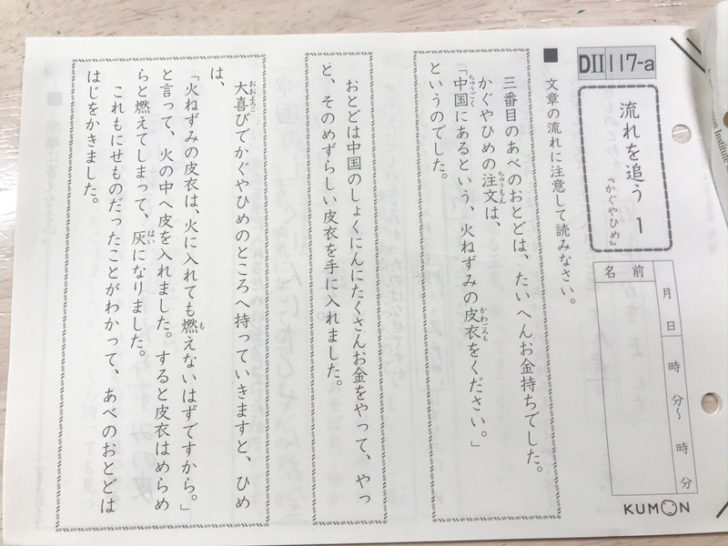 DⅡ 117-a
流れを追う 1
『かぐやひめ』
月 日
時 分〜 時 分
名前
KUMON
■ 文章の流れに注意して読みなさい。
三番目のあべのおとどは、たいへんお金持ちでした。
かぐやひめの注文は、
「中国にあるという、火ねずみの皮衣をください。」
というのでした。
おとどは中国のしょくにんにたくさんお金をやって、やっ
と、そのめずらしい皮衣を手に入れました。
大喜びでかぐやひめのところへ持っていきますと、ひめ
は、
「火ねずみの皮衣は、火に入れても燃えないはずですから。」
と言って、火の中へ皮を入れました。すると皮衣はめらめ
らと燃えてしまって、灰になりました。
これもにせものだったことがわかって、あべのおとどは
はじをかきました。